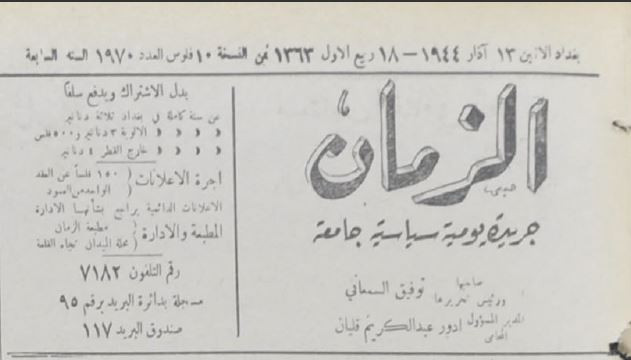 بغداد الاثنين ١٣ آذار ١٩٤٤ – ١٨ ربيع الاول ١٣٦٣ ثمن النسخة ١٠ فلوس العدد ١٩٧٠ السنه السابعة
الزمان
جريدة يومية سياسية جامعة
صاحبها
ورئيس تحريرها توفيق السمعاني
المدير المسؤول ادور عبدالكريم قليان
المحامي
بدل الاشتراك ويدفع سلفاً
عن سنة كاملة في بغداد ثلاثة دنانير
» » » » الالوية ٣ دنانير و ٥٠٠ فلس
» » » » خارج القطر ٤ دنانير
اجرة الاعلانات ( ١٥٠ فلساً عن العقد
الواحد من العمود
الاعلانات الدائمية يراجع بشأنها الادارة
المطبعة والادارة ( مطبعة الزمان
محلة الميدان تجاه القلعة
رقم التلفون ٧١٨٢
مسجلة بدائرة البريد برقم ٩٥
صندوق البريد ١١٧